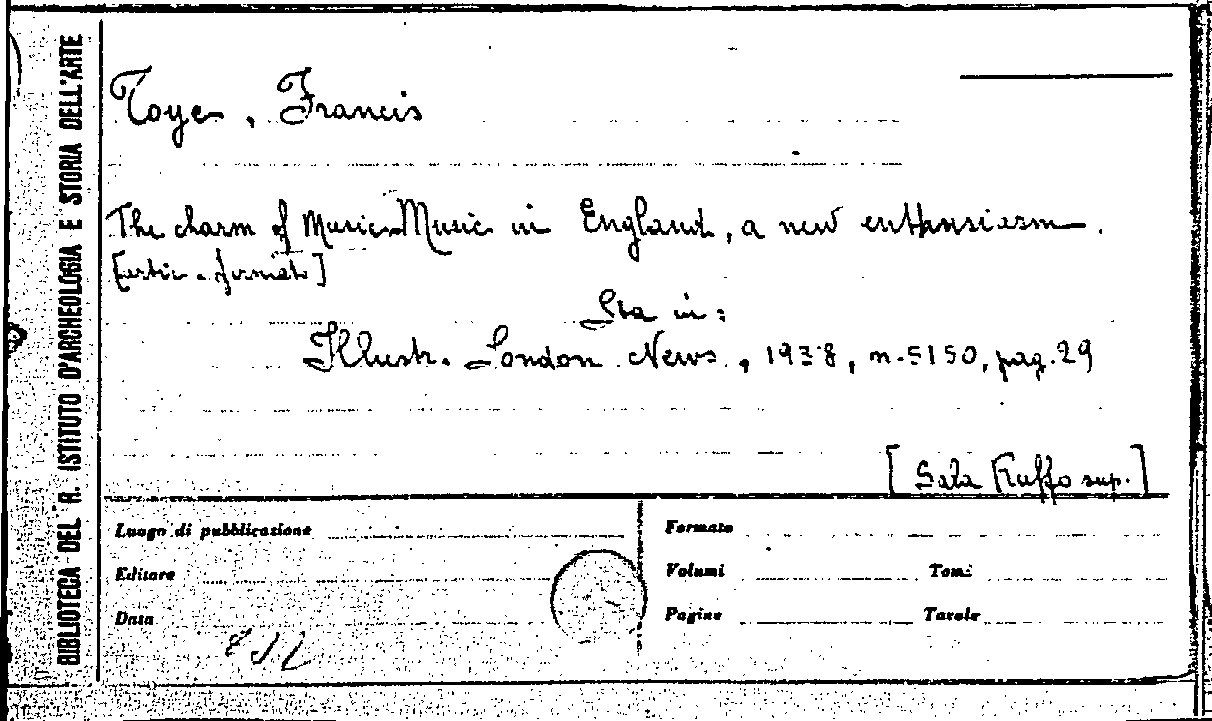 BIBLIOTECA DEL R. ISTITUTO D'ARCHEOLOGIA E STORIA DELL'ARTE
Toye, Francis
The charm of Music. Music in England, a new enthusiasm.
[artic. firmato]
Sta in:
Illustr. London News, 1938, n. 5150, pag. 29
[Sala Ruffo sup.]
Luogo di pubblicazione
Formato
Editore
Volumi Tomi
Data
Pagine Tavole